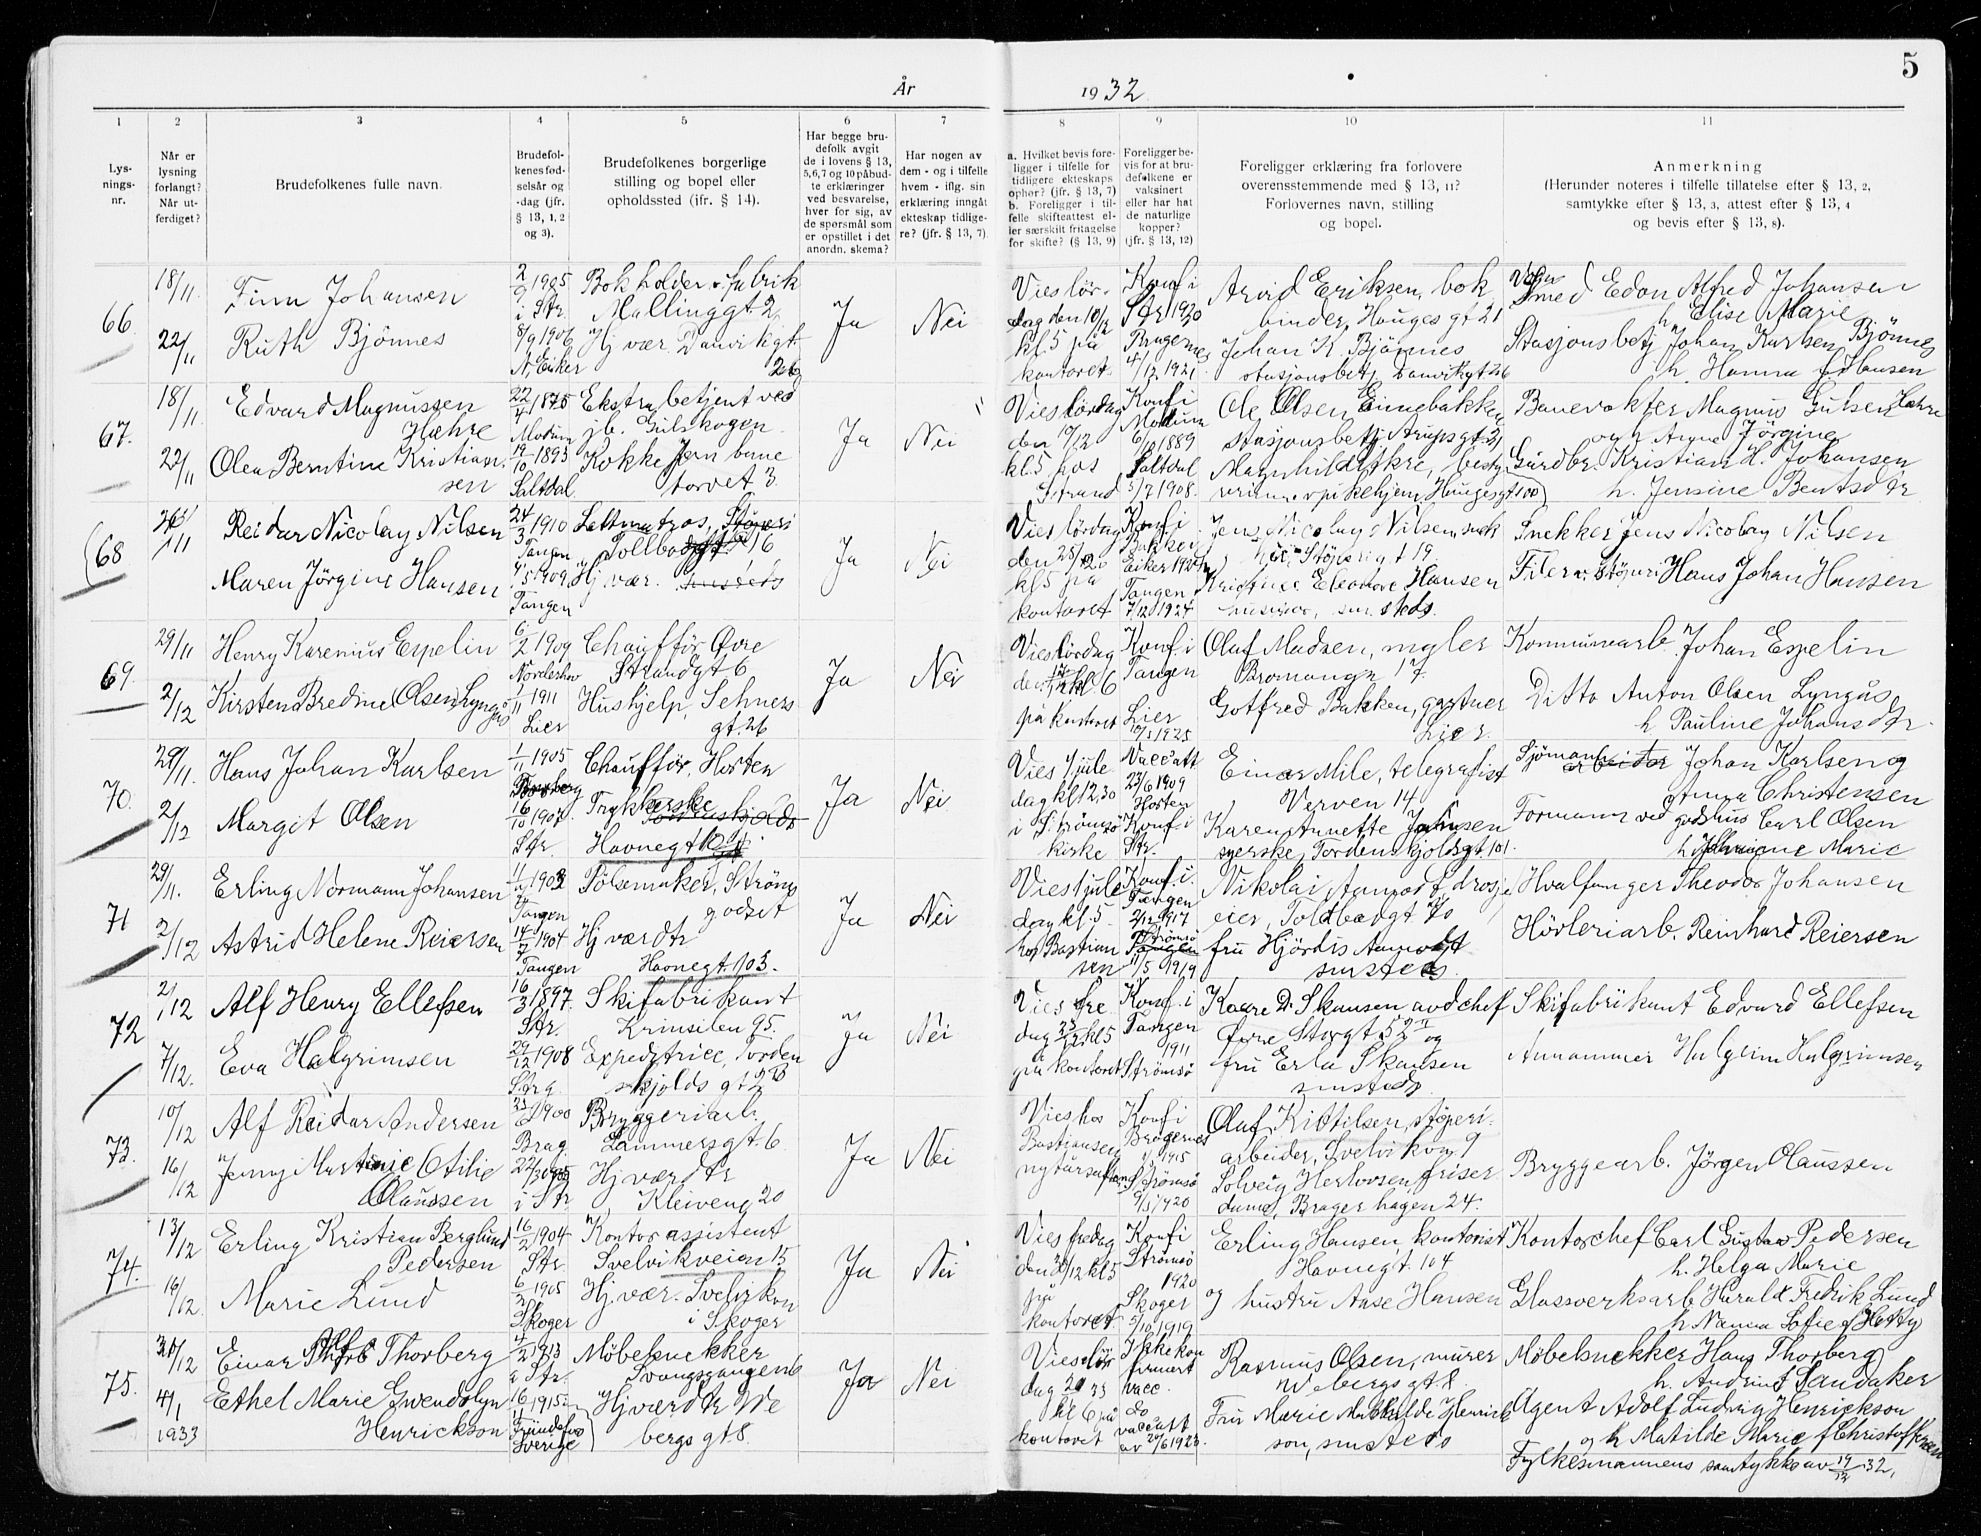 År
1932
5
1
2
3
4
5
6
7
8
9
10
11
Lys-
nings-
nr.
Når er
lysning
forlangt?
Når ut-
ferdiget?
Brudefolkenes fulle navn.
Brudefol-
kenes fød-
selsår og
-dag (jfr.
§ 13, 1, 2
og 3).
Brudefolkenes borgerlige
stilling og bopel eller
opholdssted (jfr. § 14).
Har begge bru-
defolk avgit
de i lovens § 13,
5,6,7 og 10 påbud-
te erklæringer
ved besvarelse,
hver for sig, av
de spørsmål som
er opstillet i det
anordn. skema?
Har nogen av
dem - og i tilfelle
hvem - iflg. sin
erklæring inngåt
ekteskap tidlige-
re? (jfr. § 13, 7).
a. Hvilket bevis fore-
ligger i tilfelle for
tidligere ekteskaps
ophør? (jfr. § 13, 7)
b. Foreligger i til-
felle skifteattest el-
ler særskilt fritagelse
for skifte? (§ 13, 9)
Foreligger be-
vis for at bru-
defolkene er
vaksinert
eller har hat
de naturlige
kopper?
(jfr. § 13, 12)
Foreligger erklæring fra forlovere
overensstemmende med § 13, 11?
Forlovernes navn, stilling
og bopel.
Anmerkning
(Herunder noteres i tilfelle tillatelse efter § 13, 2,
samtykke efter § 13, 3, attest efter § 13, 4
og bevis efter § 13, 8).
66.
18/11.
22/11
Finn Johansen
Ruth Bjönnes
1905
i Str.
8/9 1906
N. Eiker
Bokholder v. fabrik
Mallinggt. 2
Hj vær. Danvikgt
26
Ja
Nei
Vies lör-
dag den 10/12
kl. 5 på
kontoret
Konf i
Str 1920
Bragernes
4/12 1921
Arvid Eriksen, bok
binder, Hauges gt 21
Johan K. Bjönnes
stasjonsbetj Danvikgt 26
Smed Edon Alfred Johansen
h Elise Marie
Stasjonsbetj Johan Karlsen Bjönnes
h. Hanna f Hansen
67.
18/11
22/11
Edvard Magnussen
Hæhre
Olea Berntine Kristian
sen
22/4 1875
Modum
19/10 1893
Saltdal
Ekstra betjent ved
jb. Gulskogen
Kokke Jern bane
torvet 3.
Ja
Nei
Vies lördag
den 10/12
kl. 5 hos
Strand
Konf i
Modum
6/10 1889
Saltdal
5/7 1908.
Ole Olsen Einnebakken
stasjonsbetj Arupsgt 21
Magnhild
Banevokter Magnus Gulsen Hæhre
og h Anne Jörgine
Gårdbr. Kristian H. Johansen
h. Jensine Bentsdtr
68
Reidar Nicolay Nilsen
Maren Jörgine Hansen
24/3 1910
Tangen
1909
Tangen
Lettmatros,
Tollbodgt 16
Hj vær.
Ja
Nei
Vies lördag
den
kl 5 på
kontoret
Konf i
Eiker
Tangen
7/12 1924
Jens Nicolay Nilsen snek
ker Störigt 19
Kristine Eleonore Hansen
smsteds.
Snekker Jens Nicolay Nilsen
Filer v. Störi Hans Johan Hansen
69.
29/11
2/12
Henry Karenius Espelin
Kirsten Bredine Olsen Lyngås
6/2 1909
Norderhov
1/11 1911
Lier
Chaufför Øvre
Strandgt 6
Hushjelp, Sehners
gt. 26
Ja
Nei
Vies lördag
den 17/12 kl 6
på kontoret
Konf i
Tangen
Lier
1925
Olaf Madsen, mgler
Bromangn 17.
Gotfred Bakken, gartner
Lier.
Kommunearb. Johan Espelin
Ditto Anton Olsen Lyngås
h Pauline Johansdtr.
70.
29/11.
2/12
Hans Johan Karlsen
Margit Olsen
1/11 1905
16/10 1907
Str.
Chauffør, Horten
Trykkerske
Havnegt
Ja
Nei
Vies 1 jule
dag kl 12,30
i Strömsö
kirke
Vacc att
23/6 1909
Horten
Konf i
Str.
Einar Mile, telegrafist
Verven 14
Karen Annette Johnsen
syerske, Tordenskjoldsgt. 101.
Sjömann arbeider Johan Karlsen og
Anna Christensen
Formann ved godshus Carl Olsen
Marie
71
29/11.
2/12
Erling Normann Johansen
Astrid Helene Reiersen
Tangen
14/7 1904
Tangen
Pölsemaker, Ström
godset
Hj værdtr
Havnegt. 103.
Ja
Nei
Vies 1 jule
dag kl. 5
hos Bastian
sen
Konf. i
Tangen
2/12 1917
Strömsö
11/5 1919
Nikolai Aamodt drosje
eier, Toldbodgt 70
fru Hjördis Aamodt
smsteds.
Hvalfanger Theodor Johansen
Hövleriarb. Reinhard Reiersen
72
2/12
7/12.
Alf Henry Ellefsen
Eva Halgrimsen
16/3 1897.
Str.
29/12 1908
Strg.
Skifabrikant
Krinsilen 95.
Expeditrice, Torden
skjolds gt 2B
Ja
Nei
Vies fre
dag 23/12 kl 5
på kontoret
Konf. i
Tangen
1911
Strömsö
Kaare D. Skansen avd chef
Övre Storgt 52 og
fru Erla Skansen
smsteds
Skifabrikant Edvard Ellefsen
Annammer Halgrim Halgrimsen
73.
10/12
16/12
Alf Reidar Andersen
Jenny Martinie Otilie
Olaussen
1900
Brag
i Str
Bryggeriarb.
Lammersgt. 6.
Hj værdtr
Kleiveng 20
Ja
Nei
Vies hos
Bastiansen
nyttårsaften
Konf i
Bragernes
1915
Strömsö
1920
Olaf Kittilsen, støperi-
arbeider, Svelvikvn 9
Solveig Herlovsen, friser
dame, Brager hagen 24.
Bryggearb. Jörgen Olaussen
74.
13/12
16/12
Erling Kristian Berglund
Pedersen
Marie Lund
16/2 1904
Str.
1905
Skoger
Kontorassistent
Svelvikveien 15
Hj. vær. Svelvikvn
i Skoger
Ja
Nei
Vies fredag
den 30/12 kl 5
på
kontoret
Konf i
Strömsö
1920
Skoger
5/10 1919
Erling Hansen, kontorist
Havnegt. 104
og hustru Aase Hansen
Kontorchef Carl Gustav Pedersen
h. Helga Marie
Glassverksarb Harald Fredrik Lund
h. Nanna Sofie f Hotty
75.
4/1
1933
Einar Thorberg
Ethel Marie Gwendolyn
Henrickson
1913
Str.
1915
Sverige
Möbelsnekker
Svangsgangen 6
Hj værdtr We
bergs gt. 8.
Ja
Nei
Vies lör
dag
kl 6 på
kontoret
Ikke kon
firmert
vacc.
do
vacc att
av 1923.
Rasmus Olsen, murer
Webergs gt. 8
Fru Marie Mathilde Henrick
son, smsteds
Møbelsnekker Hans Thorberg
h. Andrine f Sandaker
Agent Adolf Ludvig Henrickson
og h Matilde Marie f Christoffersen
Fylkesmannens samtykke av 19/12 32.